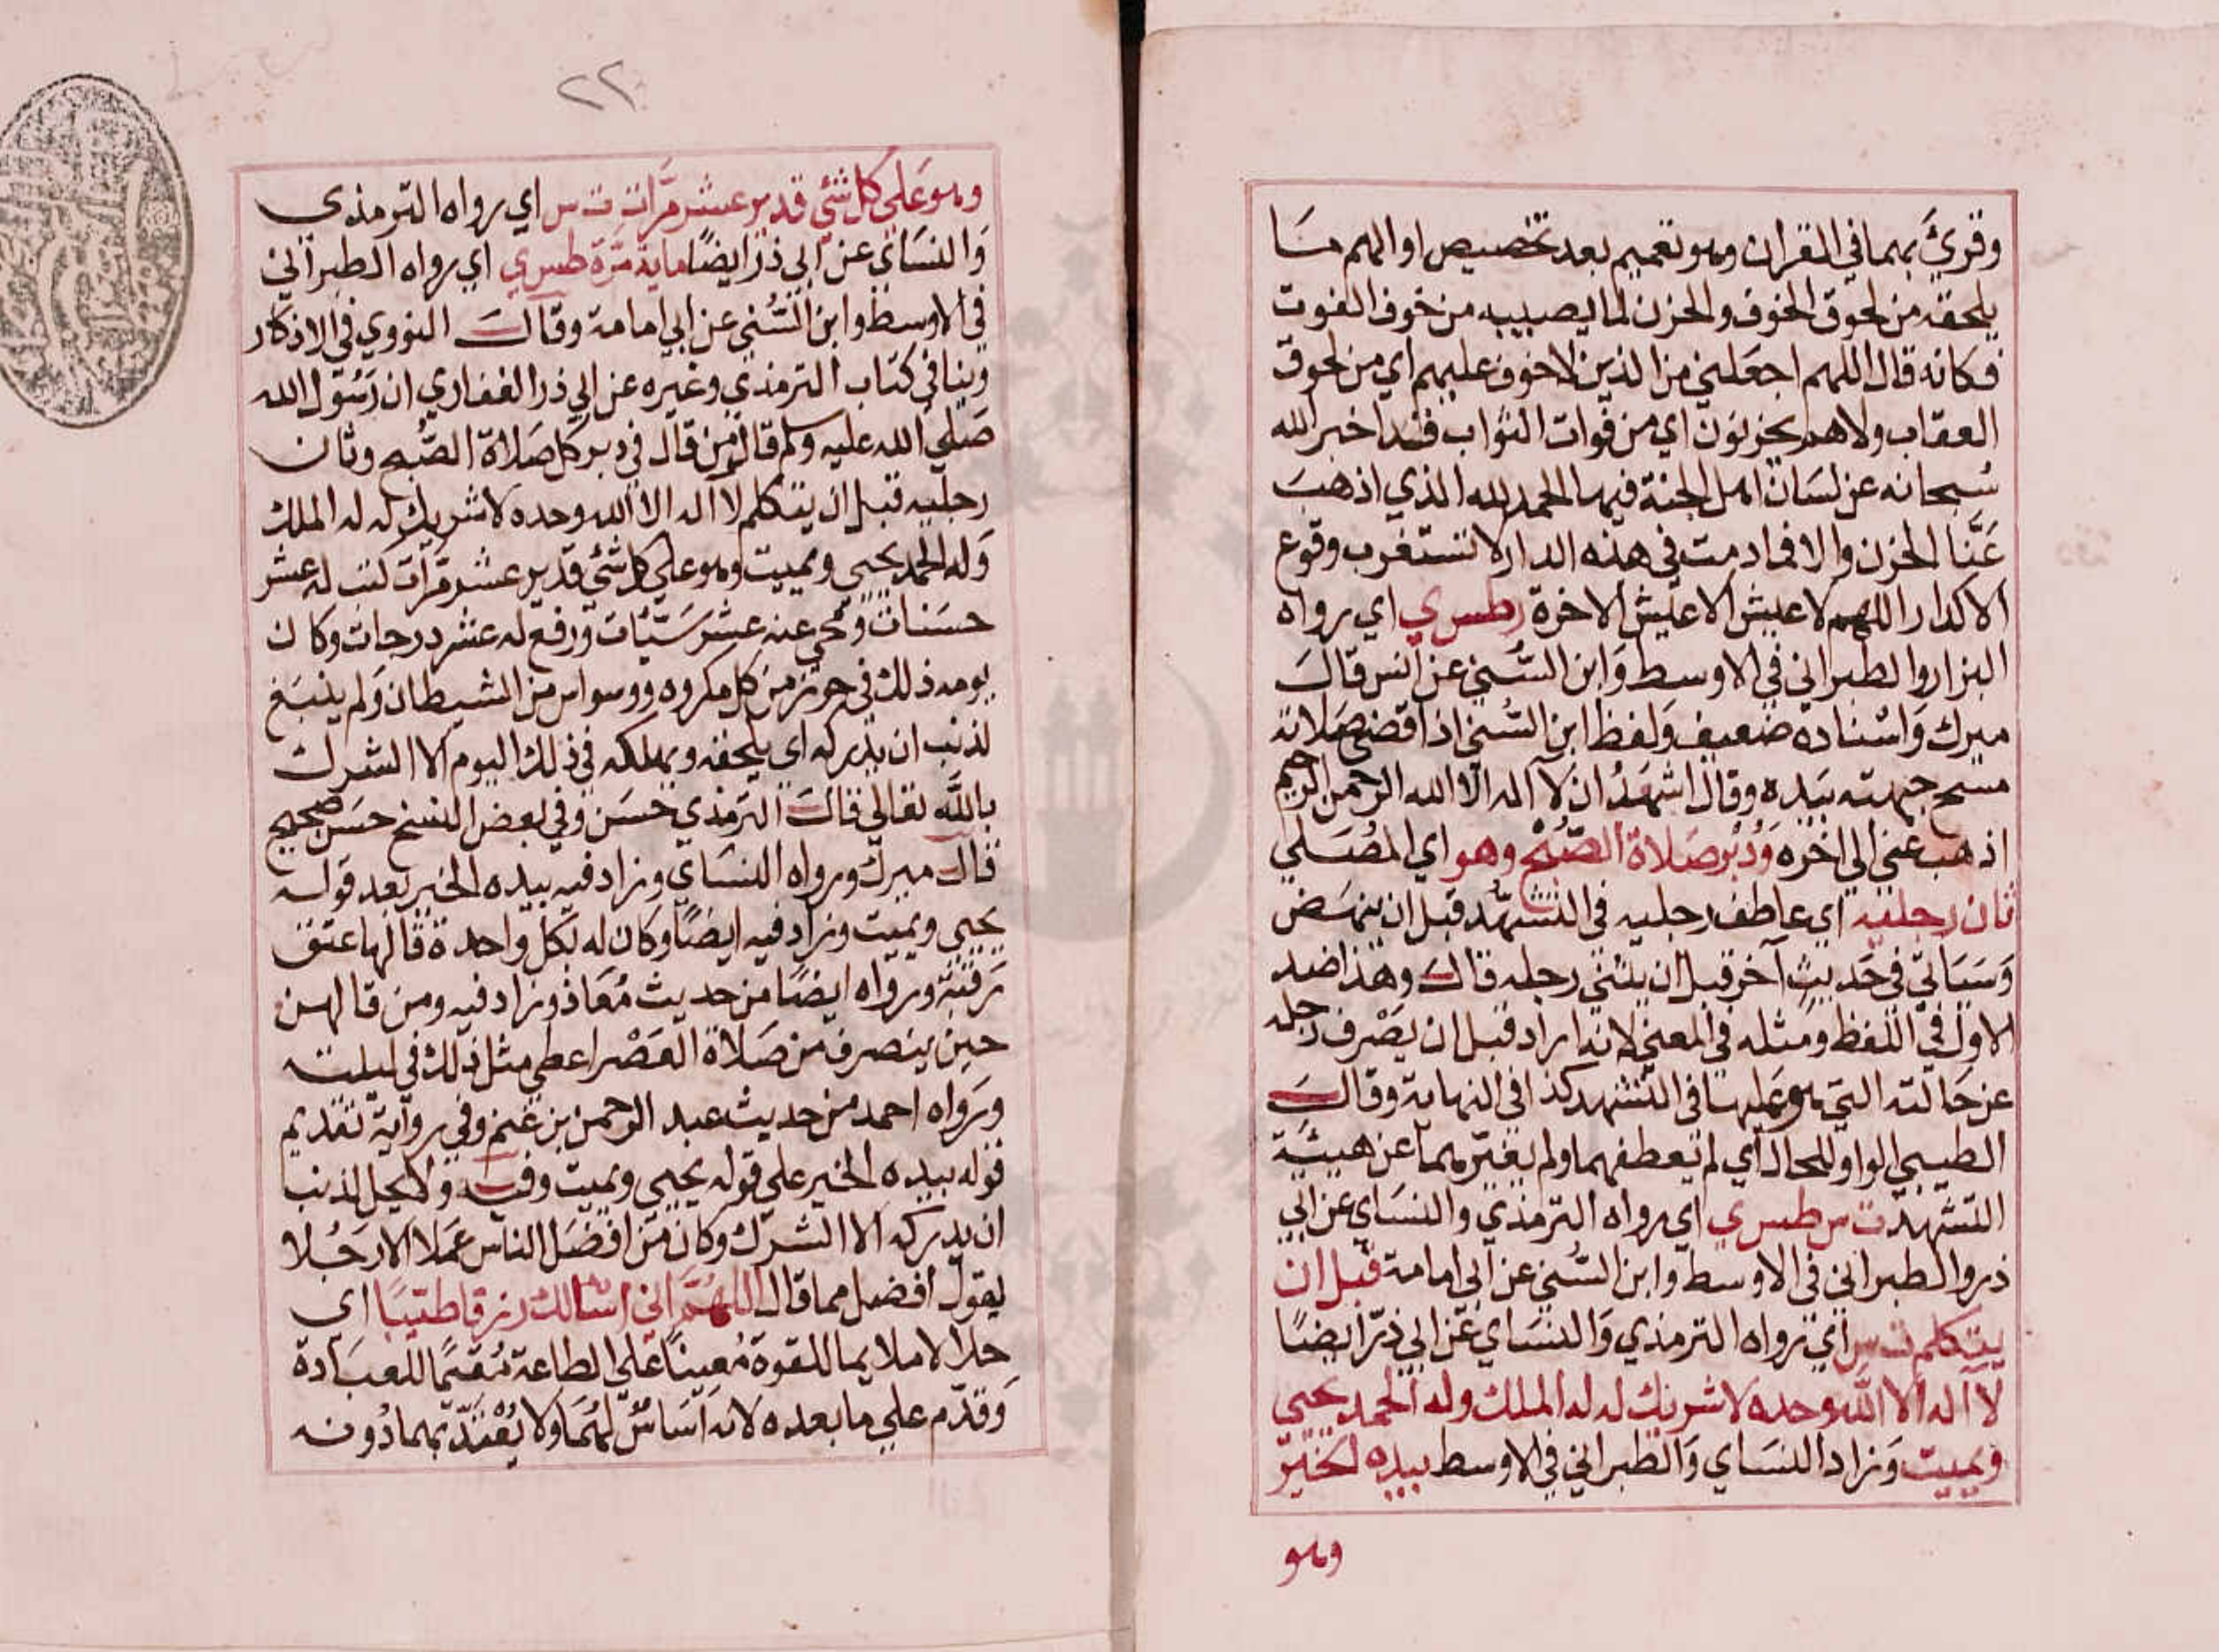 وقرئ بهما في القران وهو تعميم بعد تخصيص او الهم ما
يلحقه من لحوق الخوف والحزن لما يصيبه من خوف الفوت
فكانه قال اللهم اجعلني من الذين لا خوف عليهم اي من لحوق
العقاب ولا هم يحزنون اي من فوات الثواب فقد اخبر الله
سبحانه عن لسان اهل الجنة فيها الحمد لله الذي اذهب
عَنَّا الحزن والا فما دمت في هذه الدار لا تستغرب وقوع
الاكدار اللهم لا عيش الا عيش الاخرة ر طس ي اي رواه
البزار والطبراني في الاوسط وَابن السُّني عن انس قالَ
ميرك وَاسناده ضعيف وَلفظ ابن السُّني اذا قضى صَلاته
مسح جبهته بيَده وقال اشهَدُ ان لا اله الا الله الرحمن الرحيم
اذهب عني الى اخره وَدُبُر صَلاة الصُّبْح وهو اي المُصَلي
ثان رجليه اي عاطف رجليه في التشهُّد قبل ان ينهَض
وَسَيَاتي في حَديث آخر قبل ان يثني رجله قالَ وهذا ضد
الاول في اللفظ ومثله في المعني لانه اراد قبل ان يَصْرف رجله
عن حَالته التي هو عَليها في التشهد كذا في النهاية وقالَ
الطيبي الواو للحال اي لم يعطفهما ولم يغيّرهما عن هيئة
التشهد ت س طس ي اي رواه الترمذي والنسَاي عن ابي
ذر والطبراني في الاوسط وابن السُّني عن ابي امامة قبل ان
يتكلم ت س اي رواه الترمذي وَالنسَاي عَن ابي ذرّ ايضًا
لا اله الا اللَّه وحده لا شريك له له الملك وله الحمد يحيي
ويميت وَزاد النسَاي وَالطبراني في الاوسط بيده الخيرُ
وهو
٢٢
وهو عَلي كل شئ قدير عشر مَرَّات ت س اي رواه الترمذي
وَالنسَاي عن ابي ذر ايضًا ماية مَرّة طس ي اي رواه الطبراني
في الاوسط وابن السُّني عن ابي امامة وقالَ النووي في الاذكار
روينا في كتاب الترمذي وغيره عن ابي ذر الغفاري ان رَسُول الله
صَلي الله عليه وسلم قال من قال في دبر كل صَلاة الصُّبح وثان
رجليه قبل ان يتكلم لا اله الا الله وحده لا شريك له له الملك
وَله الحمد يحيي ويميت وهو علي كل شئ قدير عشر مَرّات كتب له عشر
حسَنات ومُحي عنه عشر سَيّئات ورفع له عشر درجات وكان
يومه ذلك في حرز من كل مكروه ووسواس من الشيطان وَلم ينبَغ
لذنب ان يدركه اي يلحقه ويهلكه في ذلك اليوم الا الشرك
باللَّه تعالي قالَ الترمذي حسَن وفي بعض النسخ حسَن صحيح
قال ميرك ورواه النسَاي وزاد فيه بيده الخير بعد قوله
يحيي ويميت وزاد فيه ايضًا وكان له بكل واحدة قالها عتق
رَقبَة ورواه ايضًا من حديث مُعَاذ وزاد فيه ومن قالهن
حين ينصرف من صَلاة العَصْر اعطي مثل ذلك في ليلته
ورَواه احمد من حديث عبد الرحمن بن غنم وفي رواية تقديم
قوله بيده الخير علي قوله يحيي ويميت وفيه وَلا يحل لذنب
ان يدركه الا الشرك وكان من افضَل الناس عَملا الا رَجُلا
يقول افضل مما قال اللهُمّ اني اسالك رزقا طيّبًا اي
حلالا ملايما للقوة مُعينًا عَلي الطاعة مُقيمًا للعبَادة
وَقدّم علي ما بعده لانه اَسَاسٌ لهُمَا وَلا يُعْتَدّ بهما دُونه